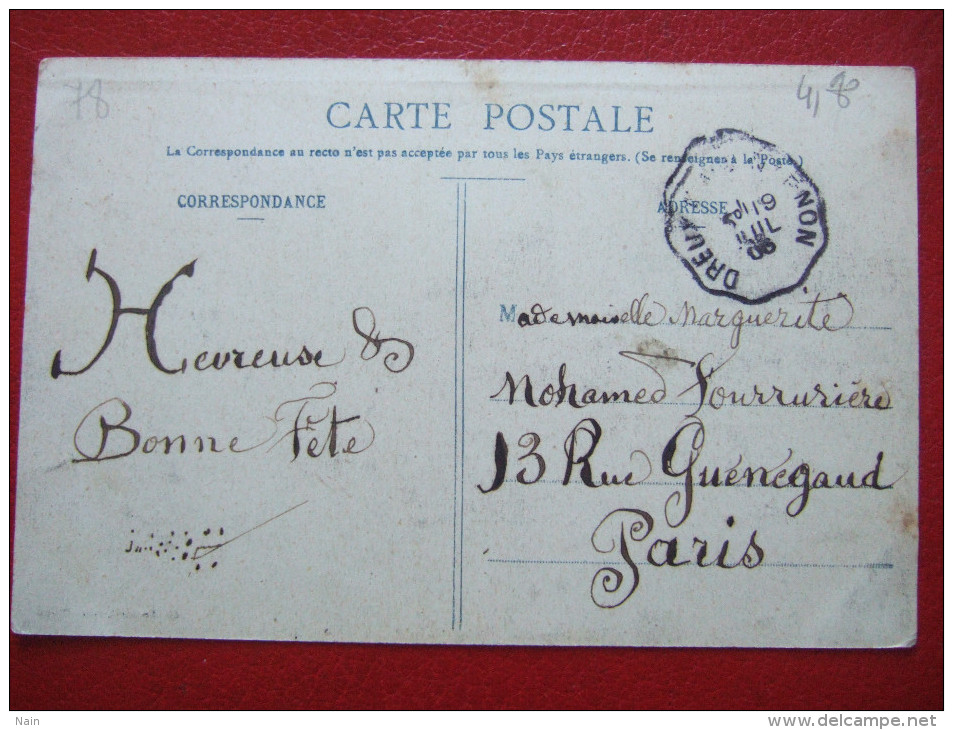 78
4,80
CARTE POSTALE
La Correspondance au recto n'est pas acceptée par tous les Pays étrangers. (Se renseigner à la Poste.)
CORRESPONDANCE
ADRESSE
DREUX
NON
Heureuse &
Bonne Fête
Mademoiselle Marguerite
Mohamed Fourrurière
13 Rue Guénégaud
Paris
Nain
www.delcampe.net